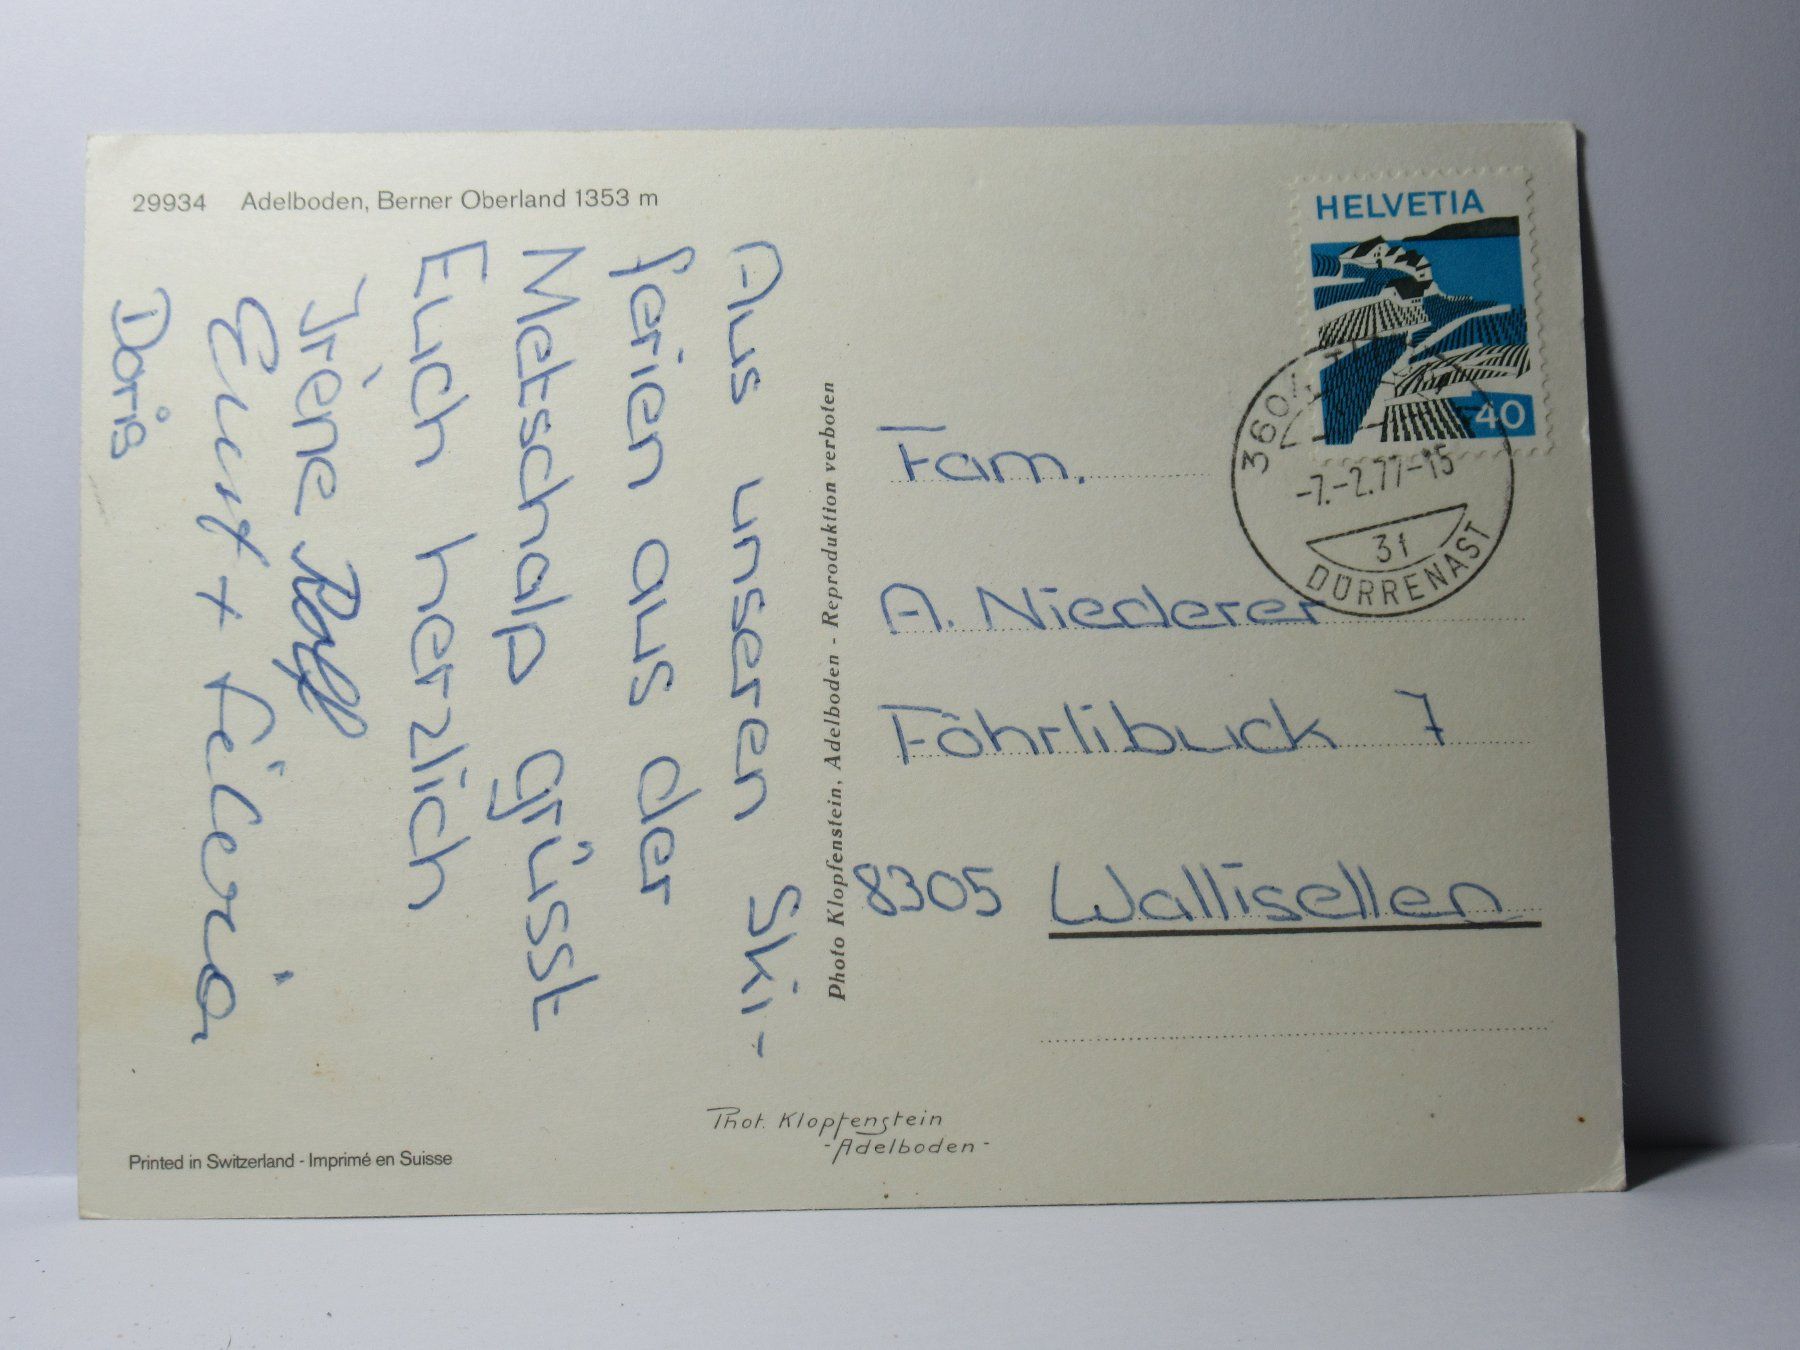 29934 Adelboden, Berner Oberland 1353 m
Aus unseren Ski-
ferien aus der
Metschalp grüsst
Euch herzlich
Irène Rolf
Ernst + Silvia
Doris
Photo Klopfenstein, Adelboden - Reproduktion verboten
HELVETIA
40
3604
-7.-2.77-15
3f
DÜRRENAST
Fam.
A. Niederer
Föhrlibuck 7
8305 Wallisellen
Phot. Klopfenstein
-Adelboden-
Printed in Switzerland - Imprimé en Suisse